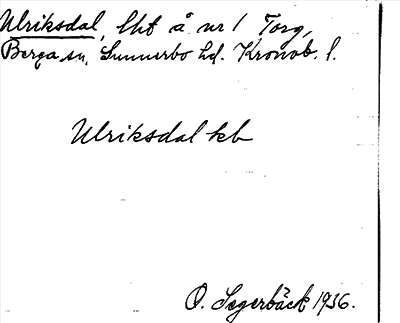 Ulriksdal, lht å nr 1 Torg,
Berga sn, Sunnerbo hd. Kronob. l.
Ulriksdal kb
O. Segerbäck 1936.